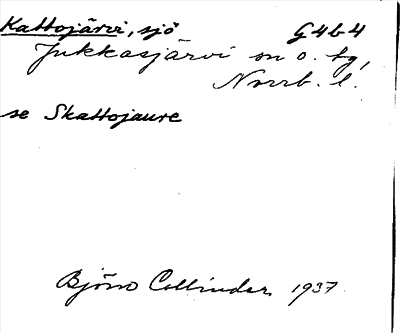 Kattojärvi, sjö G4b4
Jukkasjärvi sn o. tg,
Norrb. l.
se Skattojaure
Björn Collinder 1937